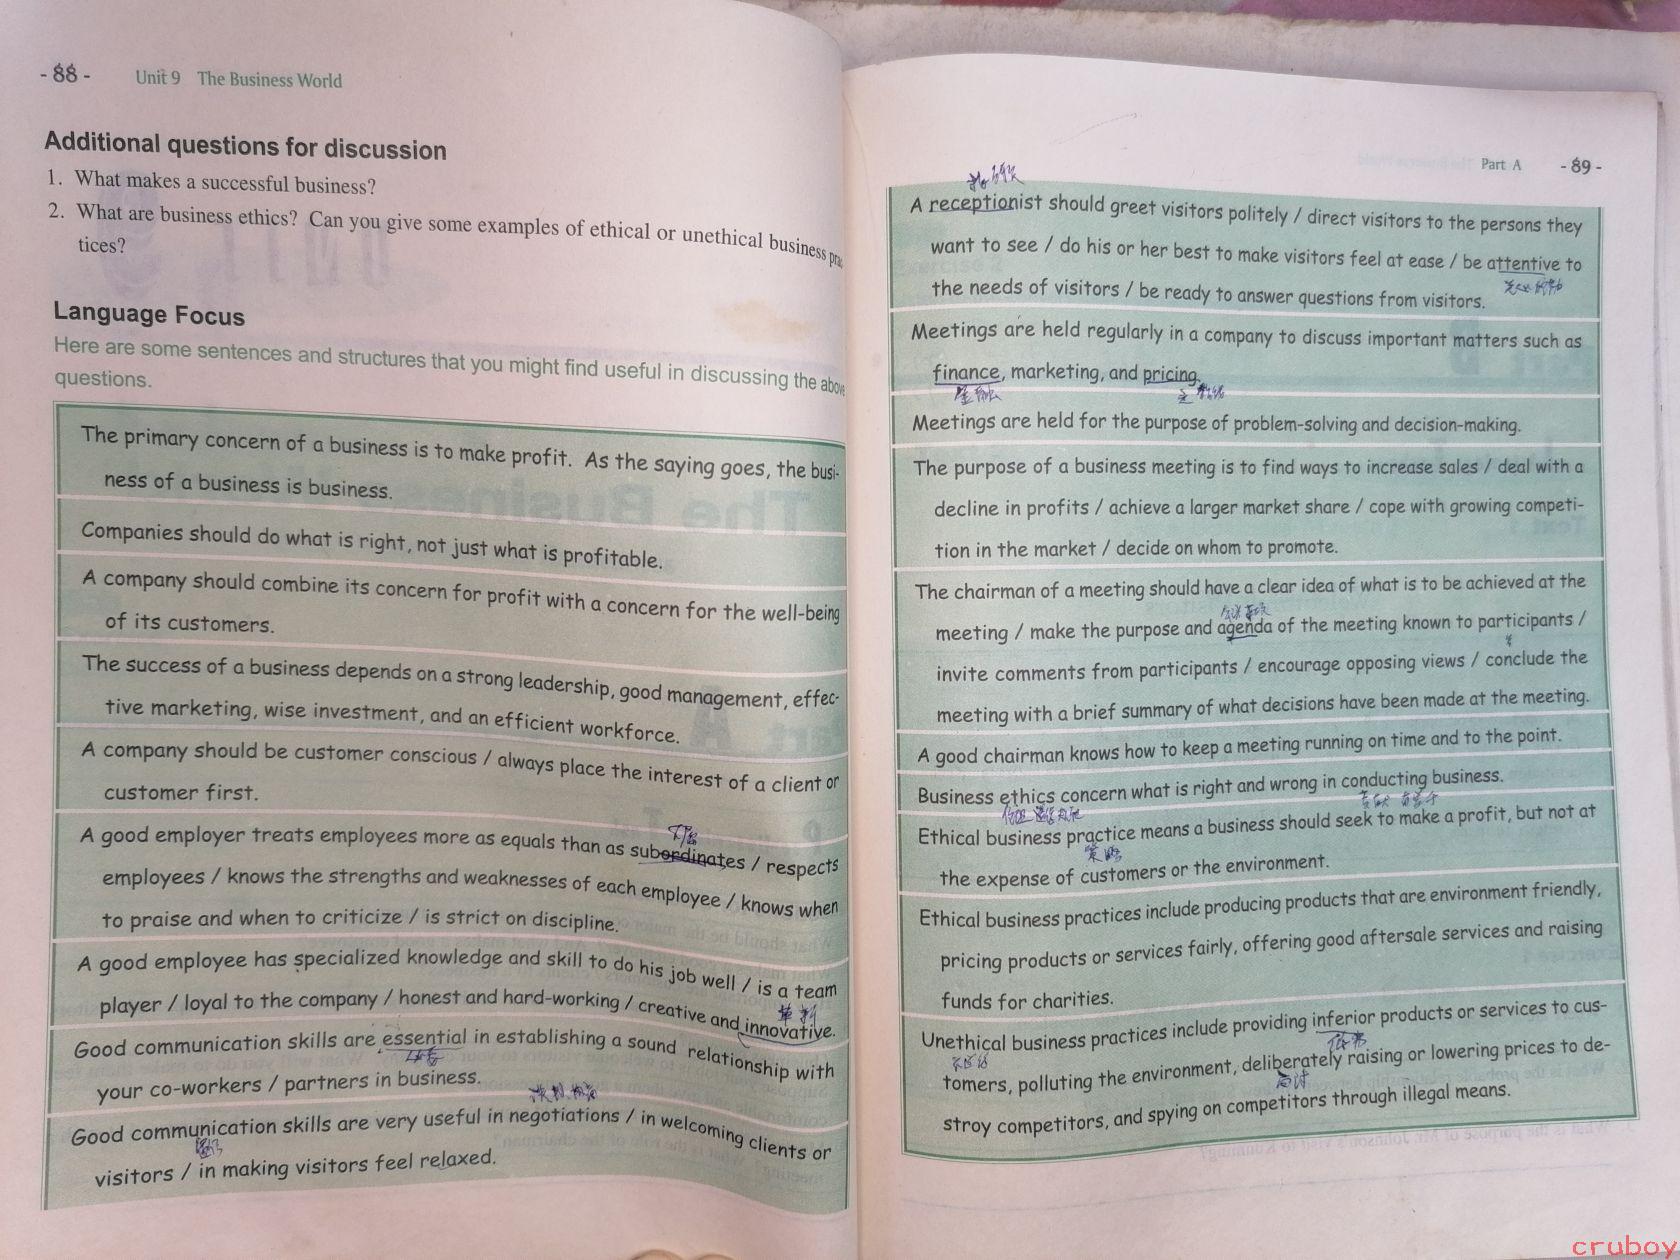 - 88 -
Unit 9 The Business World
Additional questions for discussion
1. What makes a successful business?
2. What are business ethics? Can you give some examples of ethical or unethical business prac
tices?
Language Focus
Here are some sentences and structures that you might find useful in discussing the above
questions.
The primary concern of a business is to make profit. As the saying goes, the busi-
ness of a business is business.
Companies should do what is right, not just what is profitable.
A company should combine its concern for profit with a concern for the well-being
of its customers.
The success of a business depends on a strong leadership, good management, effec-
tive marketing, wise investment, and an efficient workforce.
A company should be customer conscious / always place the interest of a client or
customer first.
下属
A good employer treats employees more as equals than as subordinates / respects
employees / knows the strengths and weaknesses of each employee / knows when
to praise and when to criticize / is strict on discipline.
A good employee has specialized knowledge and skill to do his job well / is a team
player / loyal to the company / honest and hard-working / creative and innovative.
革新
Good communication skills are essential in establishing a sound relationship with
your co-workers / partners in business.
Good communication skills are very useful in negotiations / in welcoming clients or
visitors / in making visitors feel relaxed.
Part A
- 89 -
A receptionist should greet visitors politely / direct visitors to the persons they
want to see / do his or her best to make visitors feel at ease / be attentive to
the needs of visitors / be ready to answer questions from visitors.
Meetings are held regularly in a company to discuss important matters such as
finance, marketing, and pricing.
金融
Meetings are held for the purpose of problem-solving and decision-making.
The purpose of a business meeting is to find ways to increase sales / deal with a
decline in profits / achieve a larger market share / cope with growing competi-
tion in the market / decide on whom to promote.
The chairman of a meeting should have a clear idea of what is to be achieved at the
meeting / make the purpose and agenda of the meeting known to participants /
invite comments from participants / encourage opposing views / conclude the
meeting with a brief summary of what decisions have been made at the meeting.
A good chairman knows how to keep a meeting running on time and to the point.
Business ethics concern what is right and wrong in conducting business.
Ethical business practice means a business should seek to make a profit, but not at
策略
the expense of customers or the environment.
Ethical business practices include producing products that are environment friendly,
pricing products or services fairly, offering good aftersale services and raising
funds for charities.
Unethical business practices include providing inferior products or services to cus-
tomers, polluting the environment, deliberately raising or lowering prices to de-
stroy competitors, and spying on competitors through illegal means.
cruboy